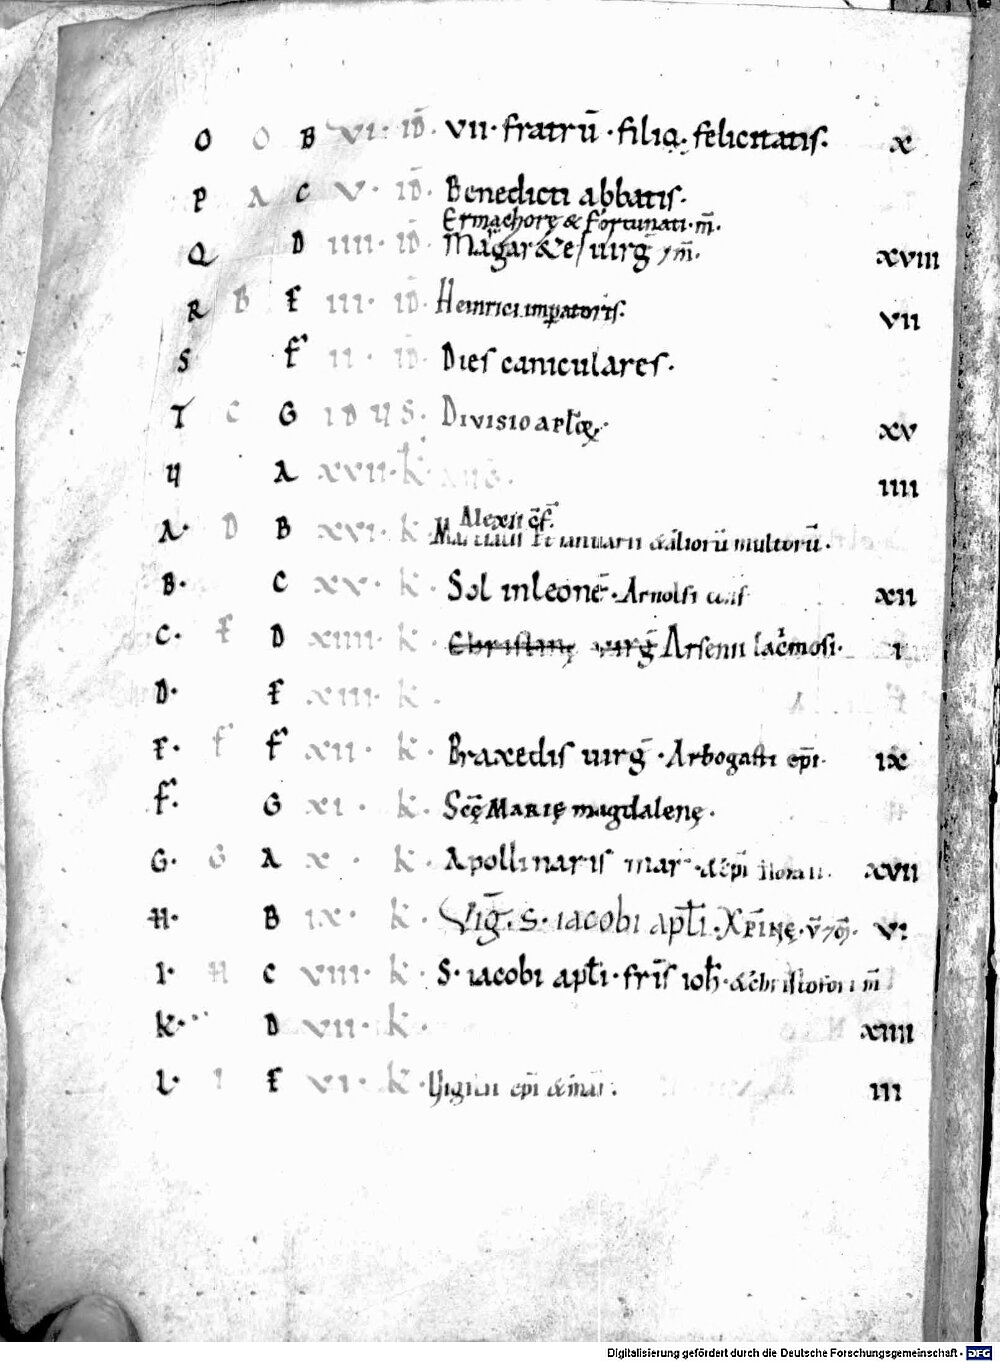 O O B VI· ID̄· VII· fratrū· filiọ· felicitatis· X
P A C V· ID̄· Benedicti abbatis·
Ermachorę & fortunati· m̄·
Q D IIII· ID̄· Margar&e uirḡ / m̄· XVIII
R B E III· ID̄· Heinrici imperatoris· VII
S · F II· ID̄· Dies caniculares·
T C G IDUS· Divisio aptoꝝ· XV
U A XVII· k̄· AUG· IIII
Alexii c̄f·
A· D B XVI· k· & aliorū multorū·
B· C XV· k· Sol in leone· Arnolfi XII
C· E D XIIII· k· Christinę uirḡ Arsenii I
D· E XIII· k·
E· F F XII· k· Praxedis uirḡ· Arbogasti ep̄i· IX
F· G XI· k· Scę MARIĘ magdalenę·
G· G A X· k· Apollinaris mar & ep̄i XVII
H· B IX· k· Viḡ· S· iacobi apl̄i· Xp̄inę· v̄ VI
I· H C VIII· k· S· iacobi apl̄i· fr̄is ioh̄· & christofori m̄
K· D VII· k· XIIII
L· I E VI· k· ep̄i & mar· III
Digitalisierung gefördert durch die Deutsche Forschungsgemeinschaft - DFG